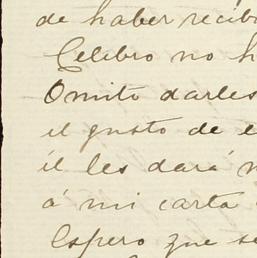 de haber recib
Celebro no h
Omito darles
el gusto de e
él les dará n
á mi carta
Espero que se